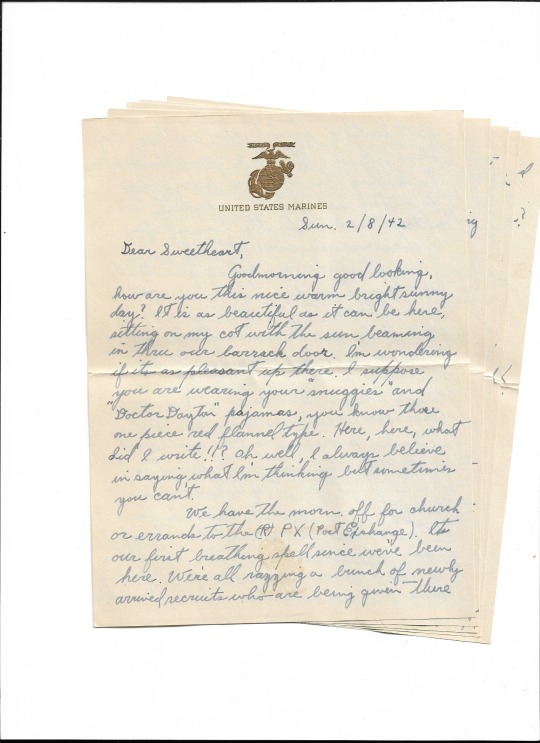 UNITED STATES MARINES
Sun. 2/8/42
Dear Sweetheart,
Goodmorning good looking,
how are you this nice warm bright sunny
day? It is as beautiful as it can be here,
sitting on my cot with the sun beaming
in thru our barrack door. I'm wondering
if its as pleasant up there. I suppose
you are wearing your "snuggies" and
"Doctor Dayton" pajamas, you know those
one piece red flannel type. Here, here, what
did I write!!? Oh well, I always believe
in saying what I'm thinking but sometimes
you can't.
We have the morn. off for church
or errands to the (R) P X (Post Exchange). Its
our first breathing spell since we've been
here. We're all razzing a bunch of newly
arrived recruits who are being given there